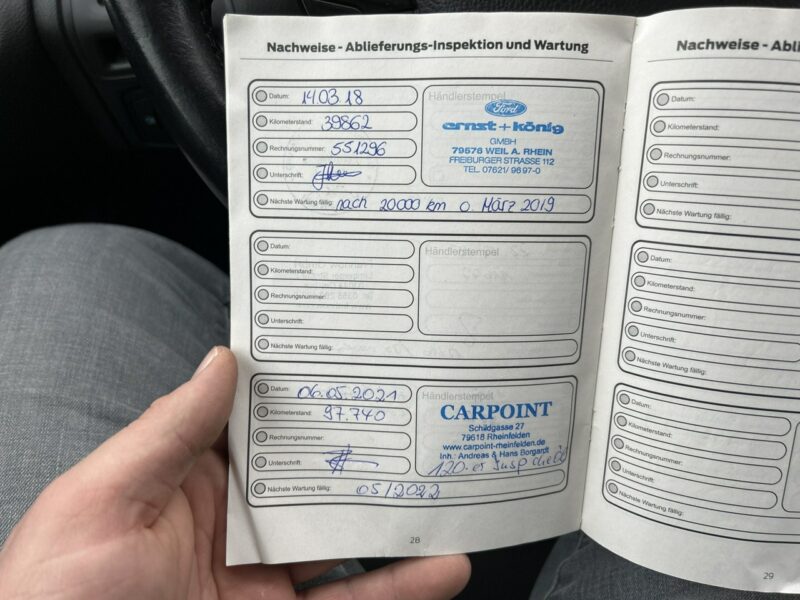 Nachweise - Ablieferungs-Inspektion und Wartung
Datum: 14.03.18
Kilometerstand: 39862
Rechnungsnummer: 551296
Unterschrift:
Nächste Wartung fällig: nach 20000 km o. März 2019
Händlerstempel
Ford
ernst+könig
GMBH
79576 WEIL A. RHEIN
FREIBURGER STRASSE 112
TEL. 07621/ 9697-0
Datum:
Kilometerstand:
Rechnungsnummer:
Unterschrift:
Nächste Wartung fällig:
Händlerstempel
Datum: 06.05.2021
Kilometerstand: 97.740
Rechnungsnummer:
Unterschrift:
Nächste Wartung fällig: 05/2022
Händlerstempel
CARPOINT
Schildgasse 27
79618 Rheinfelden
www.carpoint-rheinfelden.de
Inh.: Andreas & Hans Borgardt
120.er Insp
28
Nachweise - Abli
Datum:
Kilometerstand:
Rechnungsnummer:
Unterschrift:
Nächste Wartung fällig:
Datum:
Kilometerstand:
Rechnungsnummer:
Unterschrift:
Nächste Wartung fällig:
Datum:
Kilometerstand:
Rechnungsnummer:
Unterschrift:
Nächste Wartung fällig:
29